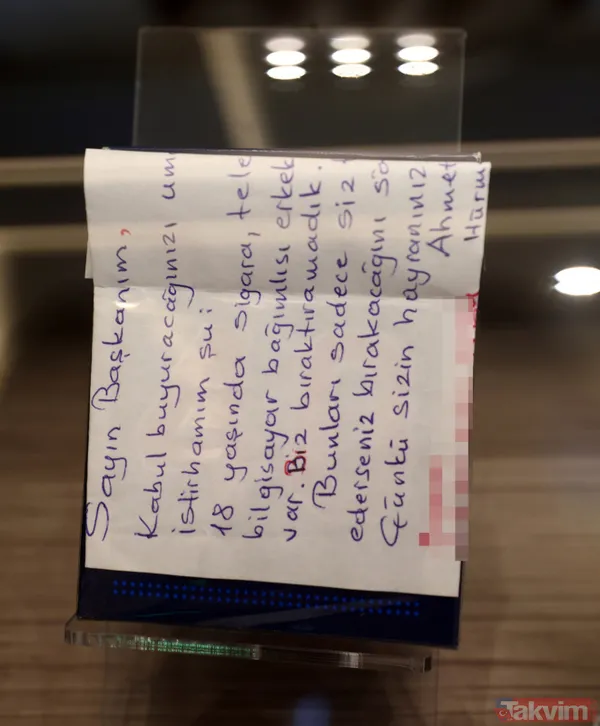 Sayın Başkanım,
Kabul buyuracağınızı um
istirhamım şu:
18 yaşında sigara, tele
bilgisayar bağımlısı erkek
var. Biz bıraktıramadık.
Bunları sadece siz
ederseniz bırakacağını sö
Çünkü sizin hayranınız
Ahmet
Hürm
Takvim